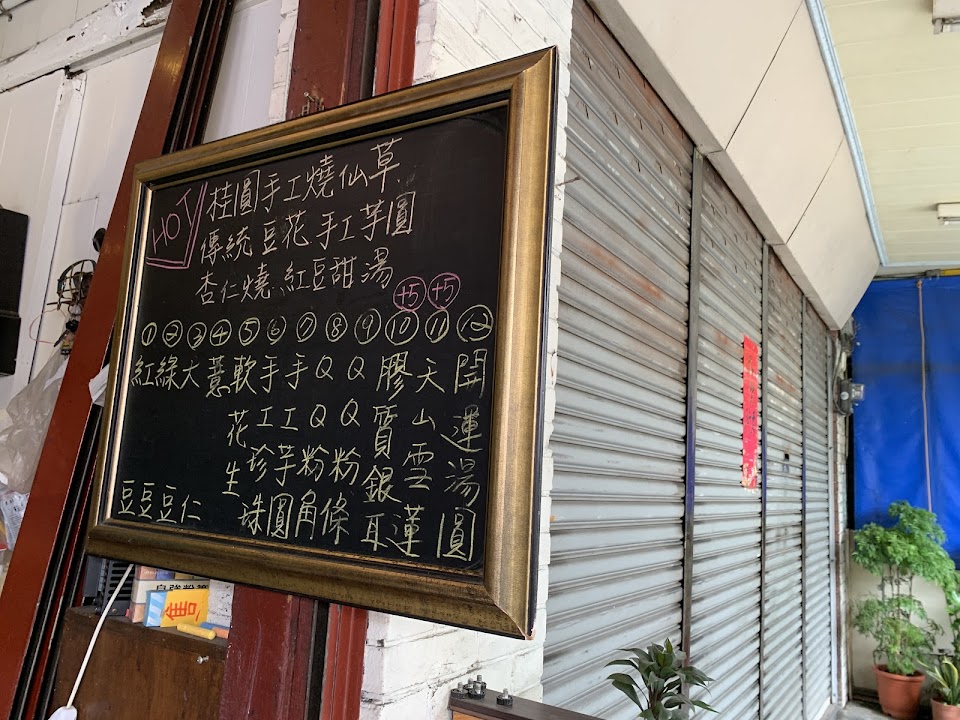 HOT
桂圓手工燒仙草
傳統豆花手工芋圓
杏仁燒紅豆甜湯
+5 +5
① ② ③ ④ ⑤ ⑥ ⑦ ⑧ ⑨ ⑩ ⑪ ⑫
紅豆
綠豆
大豆
薏仁
軟花生
手工珍珠
手工芋圓
QQ粉角
QQ粉條
膠質銀耳
天山雪蓮
開運湯圓
售